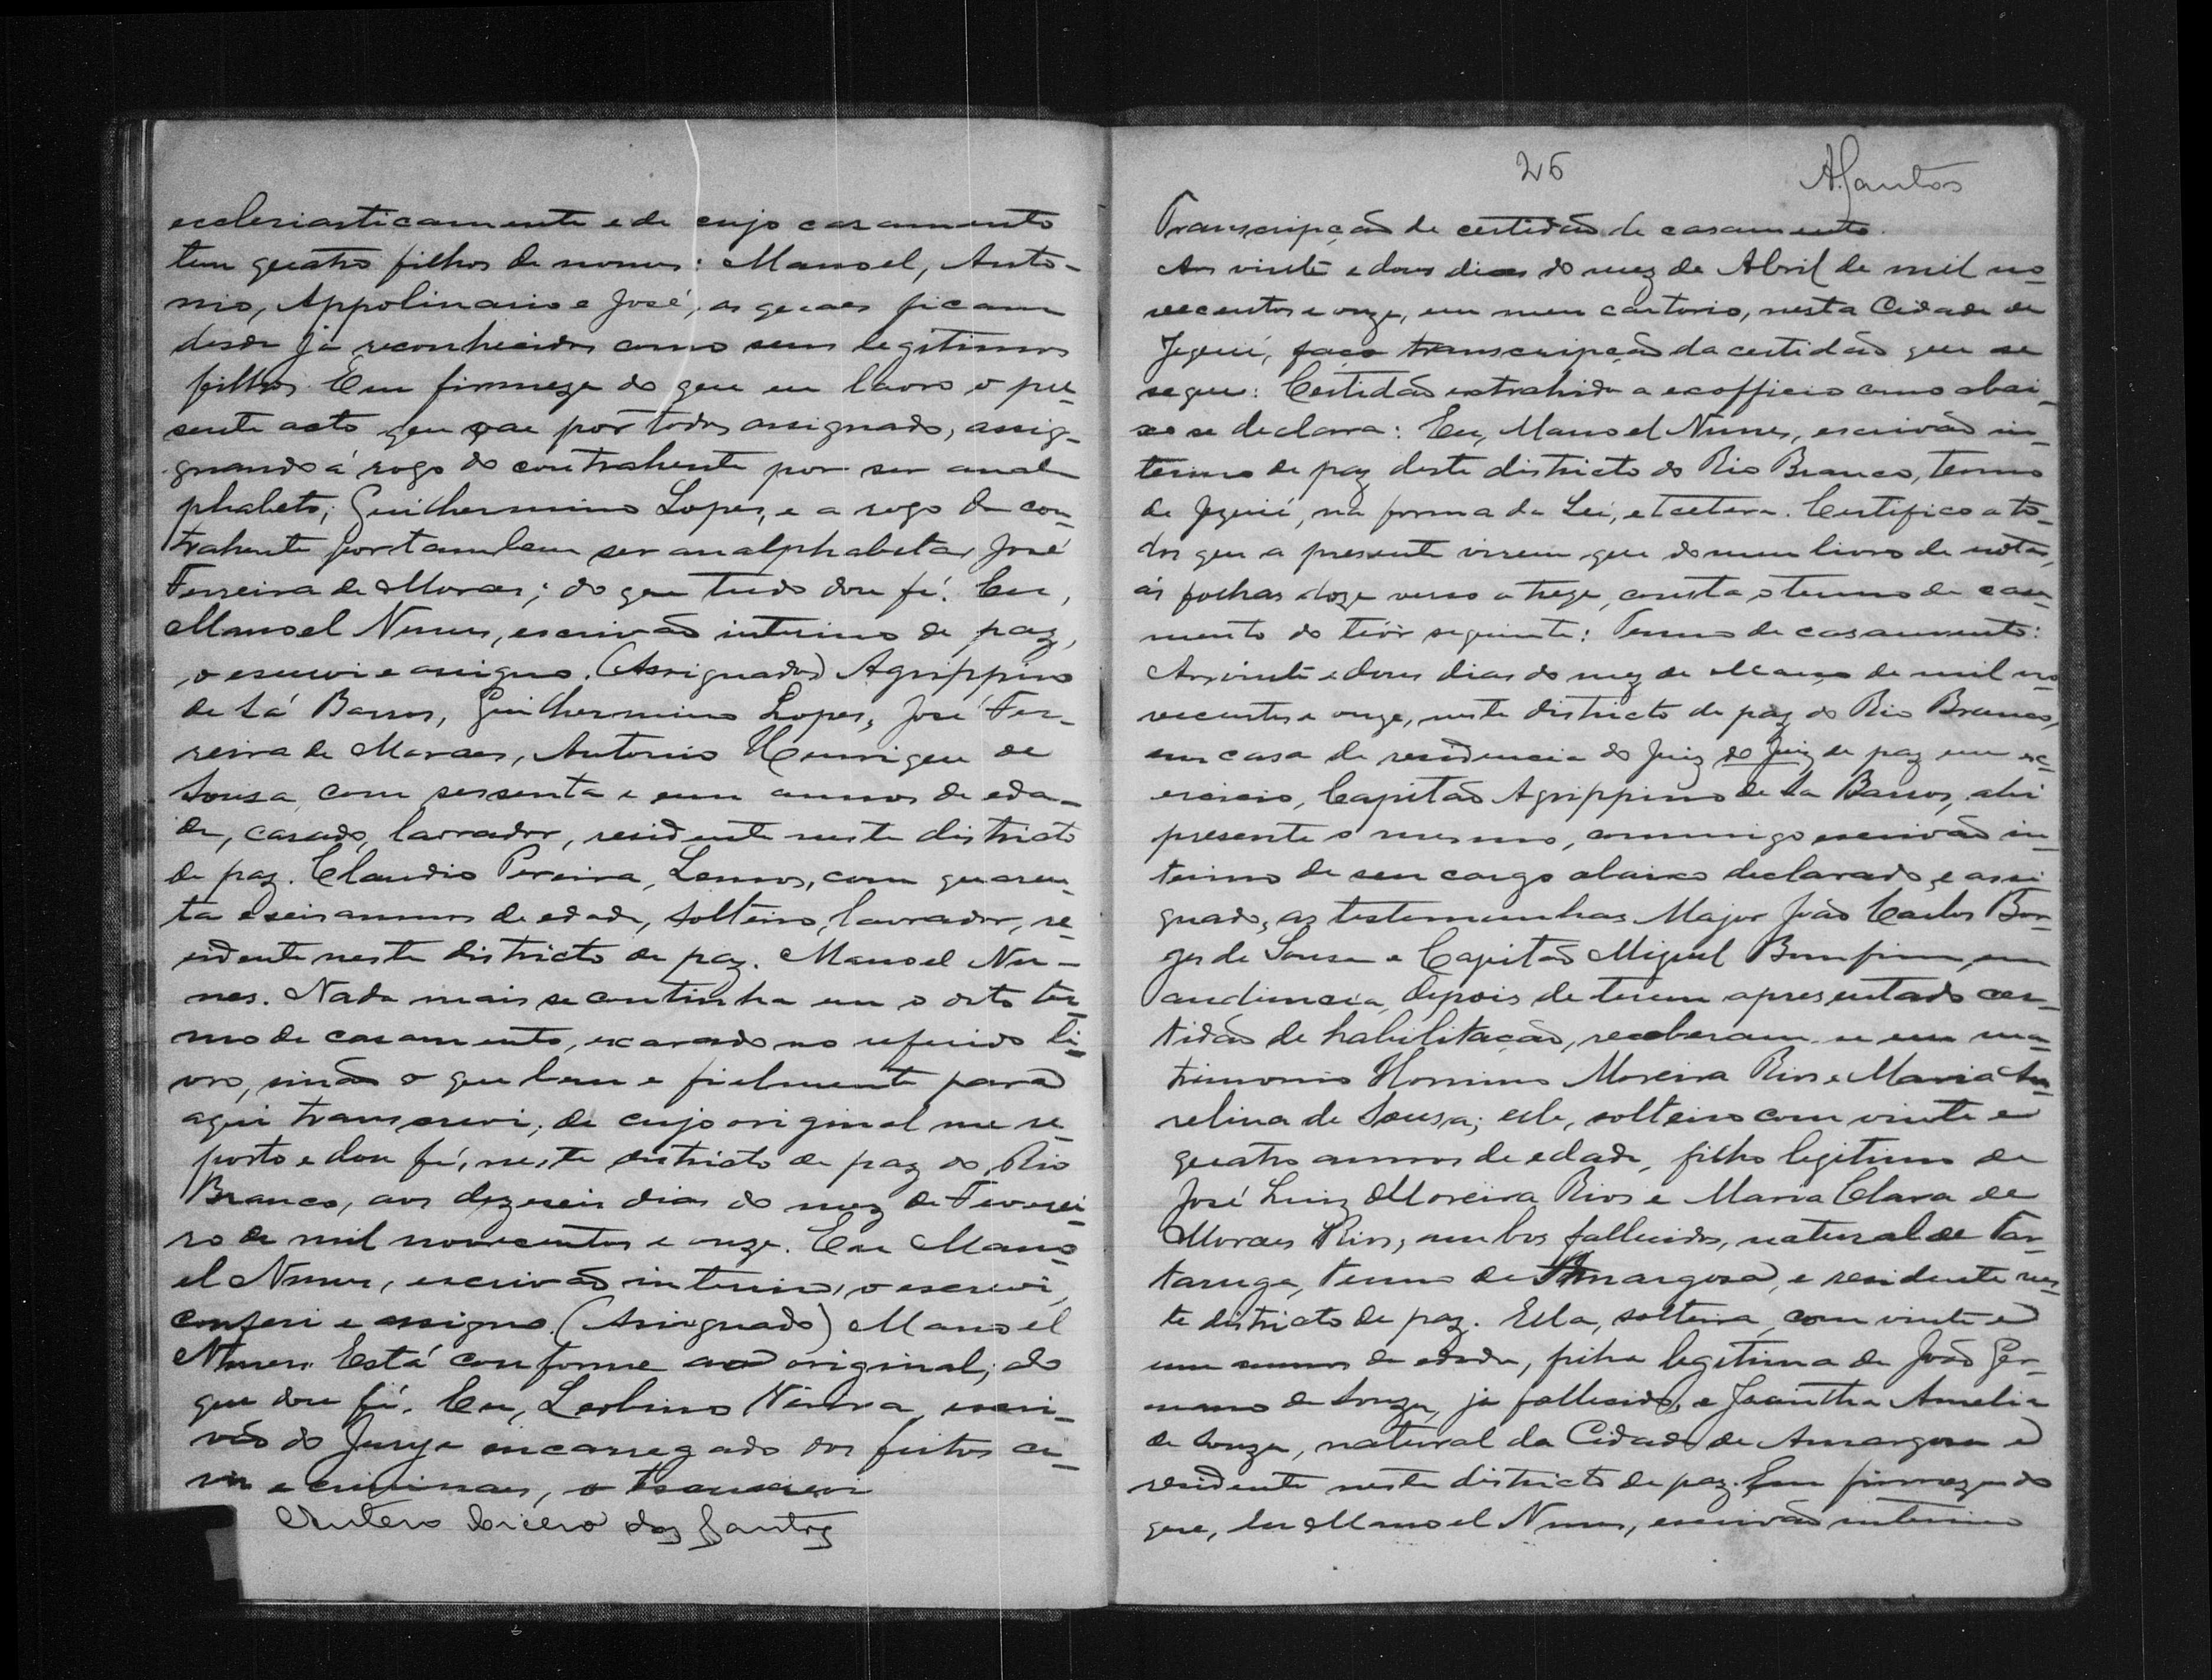 ecclesiasticamente e de cujo casamento
tem quatro filhos de nomes: Manoel, Anto-
nio, Appolinario e José, os quaes ficam
desde já reconhecidos como seus legitimos
filhos. Em firmeza do que eu lavro o pre-
sente acto que vae por todos assignado, assig-
gnando á rogo do contrahente por ser anal-
phabeto, Guilhermino Lopes, e a rogo da con-
trahente por tambem ser analphabeta, José
Ferreira de Moraes; do que tudo dou fé. Eu,
Manoel Nunes, escrivão interino de paz,
o escrevi e assigno. (Assignados) Agrippino
de Sá Barros, Guilhermino Lopes, José Fer-
reira de Moraes, Antonio Henrique de
Sousa com sessenta e um annos de eda-
de, casado, lavrador, residente neste districto
de paz. Claudio Pereira Lemos, com quaren-
ta e seis annos de edade, solteiro, lavrador, re-
sidente neste districto de paz. Manoel Nu-
nes. Nada mais se continha em o dito ter-
mo de casamento, exarado no referido li-
vro, sinão o que bem e fielmente para
aqui transcrevi, de cujo original me re-
porto e dou fé, neste districto de paz do Rio
Branco, aos dezeseis dias do mez de Feverei-
ro de mil novecentos e onze. Eu Mano
el Nunes, escrivão interino, o escrevi,
conferi e assigno. (Assignado) Manoel
Nunes. Está conforme ao original; do
que dou fé. Eu, Leolino escri-
vão do Jury e encarregado dos feitos ci-
vis e criminaes, o transcrevi
Antero Cicero dos Santos
26
A. Santos
Transcripção de certidão de casamento.
Aos vinte e dous dias do mez de Abril de mil no-
vecentos e onze, em meu cartorio, nesta Cidade de
Jequié, faço transcripção da certidão que se
segue: Certidão extrahida a exofficio como abai-
xo se declara: Eu, Manoel Nunes, escrivão in-
terino de paz deste districto do Rio Branco, termo
de Jequié, na forma da Lei, etcetera. Certifico a to-
dos que a presente virem que do meu livro de notas,
ás folhas doze verso a treze, consta o termo de casa-
mento do teôr seguinte: Termo de casamento:
Aos vinte e dous dias do mez de Março de mil no-
vecentos e onze, neste districto de paz do Rio Branco,
em casa de residencia do Juiz do Juiz de paz em ex-
ercicio, Capitão Agrippino de Sá Barros, ahi
presente o mesmo, commigo escrivão in-
terino de seu cargo abaixo declarado, e assi
gnado, as testemunhas Major João Carlos Bor-
ges de Sousa e Capitão Miguel Bomfim, em
audiencia, depois de terem apresentado cer-
tidão de habilitação, receberam-se em ma-
trimonio Moreira Rios e Maria Au-
relina de Sousa; elle, solteiro com vinte e
quatro annos de edade, filho legitimo de
José Luiz Moreira Rios e Maria Clara de
Moraes Rios, ambos fallecidos, natural de Tar-
taruga, termo de Amargosa, e residente nes-
te districto de paz. Ella, solteira, com vinte e
um annos de edade, filha legitima de João Ger-
mano de Souza, já fallecido, e Jacintha Amelia
de Souza, natural da Cidade de Amargosa e
residente neste districto de paz. Em firmeza do
que, Eu Manoel Nunes, escrivão interino